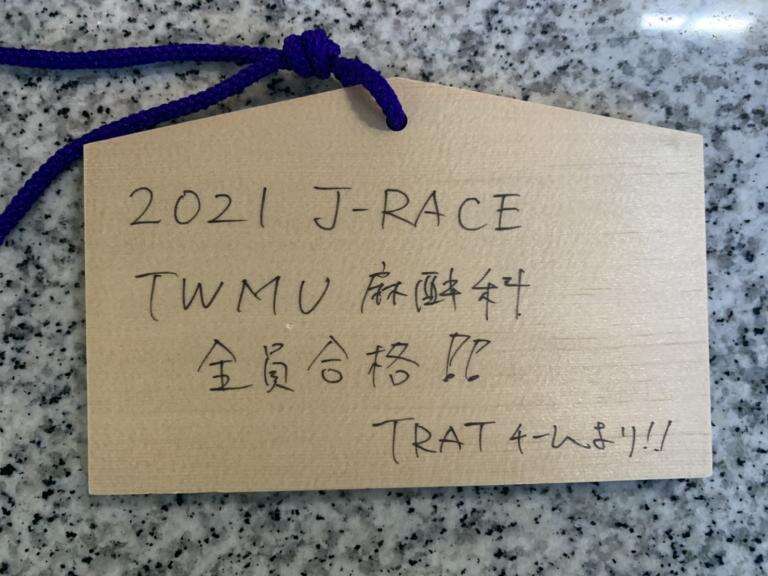 2021 J-RACE
TWMU 麻酔科
全員合格!!
TRAT チームより!!